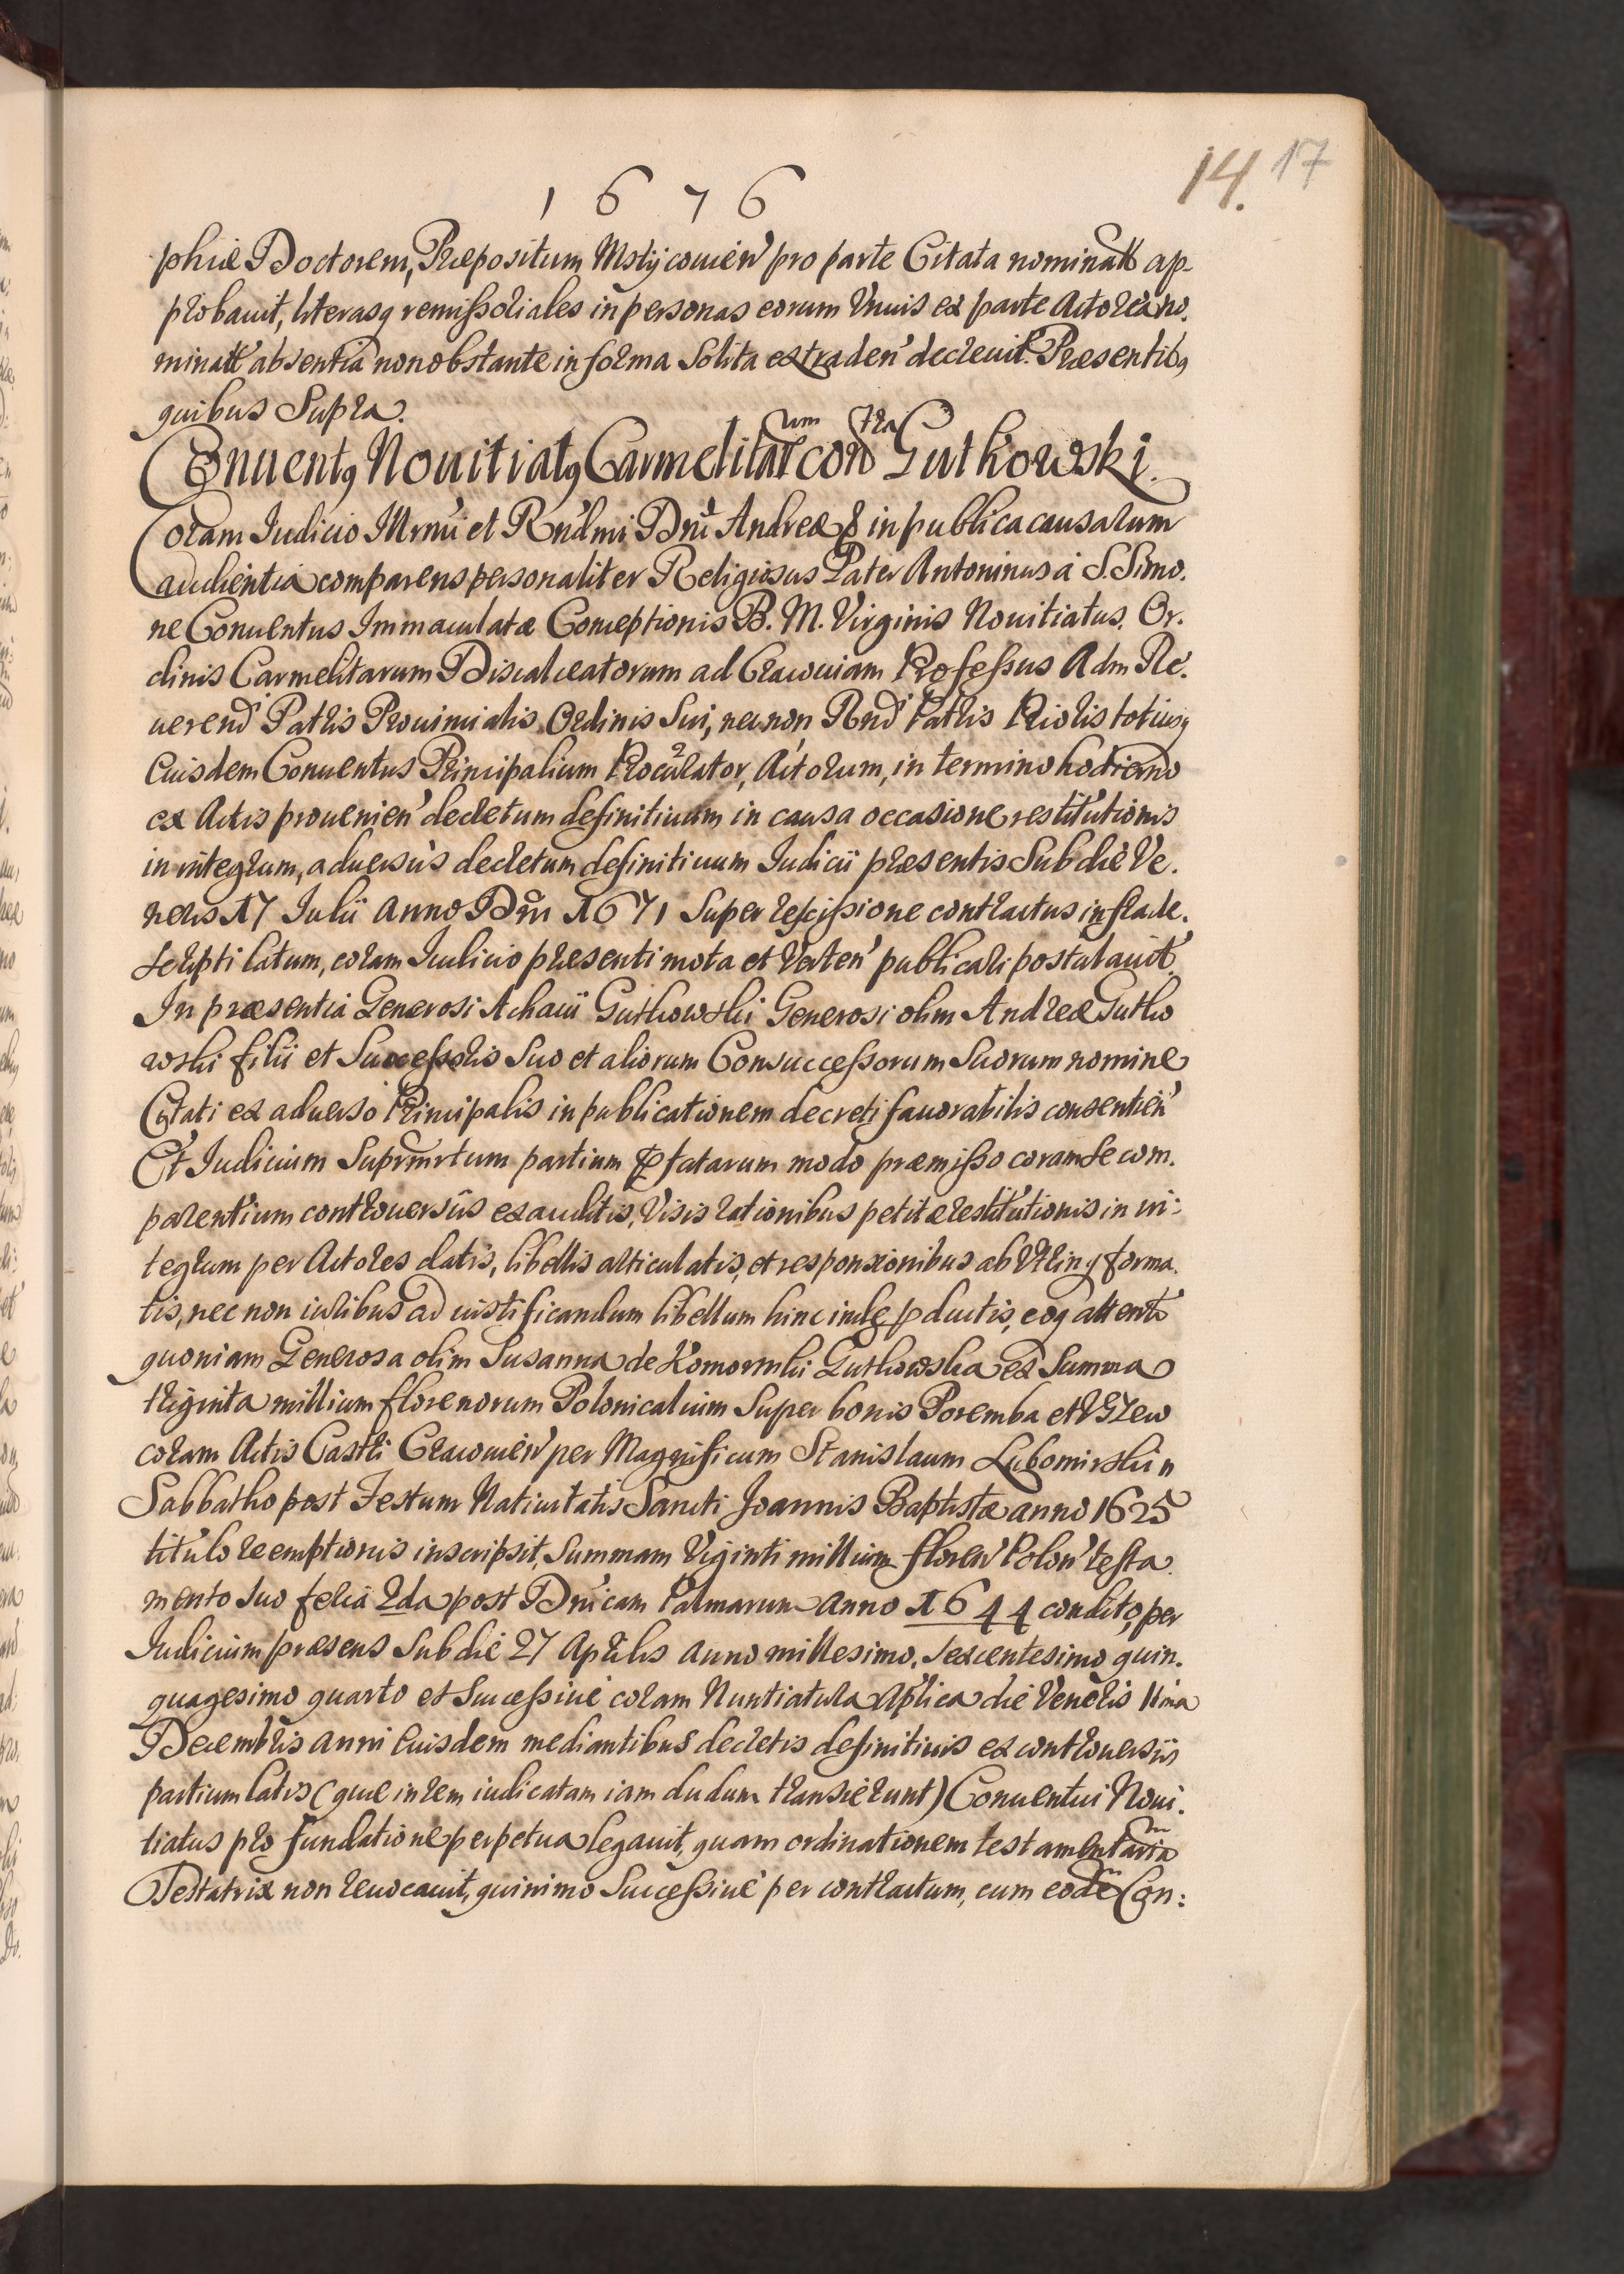 14. 17
1676
phiæ Doctorem, Præpositum Mstÿcouień pro parte Citata nominatt ap-
probauit, literasq remissoliales in personas eorum vnius ex parte Actorea no.
minatt absentia nonobstante in forma solita extraden' decreuit. Præsentibq
quibus Supra.
Conuentq Nouitiatq Carmelitarum contra Gutkowski.
Coram Iudicio Illrmi et Rndmi Dni Andreæ & in publica causarum
audientia comparens personaliter Religiosus Pater Antoninus à S. Simo.
ne Conuentus Immaculatæ Conceptionis B. M. Virginis Nouitiatus. Or.
dinis Carmelitarum Discalceatorum ad Cracouiam Professus Adm Re.
uerend' Patris Prouincialis Ordinis Sui, necnon Rnd' Patris Prioris totiusq
Eiusdem Conuentus Principalium Procurator, Actorum, in termino hodierno
ex Actis prouenien' decretum definitiuum in causa occasione restitutionis
in integrum, aduersus decretum definitiuum Iudicii præsentis Sub die Ve.
neris 17 Iulii anno Dni 1671 Super rescissione contractus infrade.
scripti latum, coram Iudicio præsenti mota et verten' publicari postulauit.
In præsentia Generosi Achacii Gutkowski Generosi olim Andreæ Gutko
wski filii et Successoris Suo et aliorum Consuccessorum Suorum nomine
Citati ex aduerso Principalis in publicationem decreti fauorabilis consentien'
Et Iudicium Suprmrtum partium præfatarum modo præmisso coram se com.
parentium controuersiis exauditis, Visis rationibus petitæ restitutionis in in:
tegrum per Actores datis, libellis articulatis, et responsionibus ab vtrinq forma.
tis, nec non iuribus ad iustificandum libellum hinc inde pductis, eoq attento
quoniam Generosa olim Susanna de Komornski Gutkowska ex Summa
triginta millium florenorum Polonicalium Super bonis Poremba et
coram Actis Castri Cracouień per Magnificum Stanislaum Lubomirski n
Sabbatho post Festum Natiuitatis Sancti Joannis Baptistæ anno 1625
titulo reemptionis inscripsit, Summam Viginti millium floren' Polon' testa.
mento suo feria 2da post Dnicam Palmarum anno 1644 condito, per
Iudicium præsens Sub die 27 Aprilis anno millesimo, sexcentesimo quin.
quagesimo quarto et Successiue coram Nuntiatura Aplica die Veneris 11ma
Decembris anni Eiusdem mediantibus decretis definitiuis ex controuersiis
partium latis (quæ in rem iudicatam iam dudum transierunt) Conuentui Noui.
tiatus pro fundatione perpetua legauit, quam ordinationem testamentariam
Testatrix non reuocauit, quinimo Successiue per contractum, cum eodē Con: